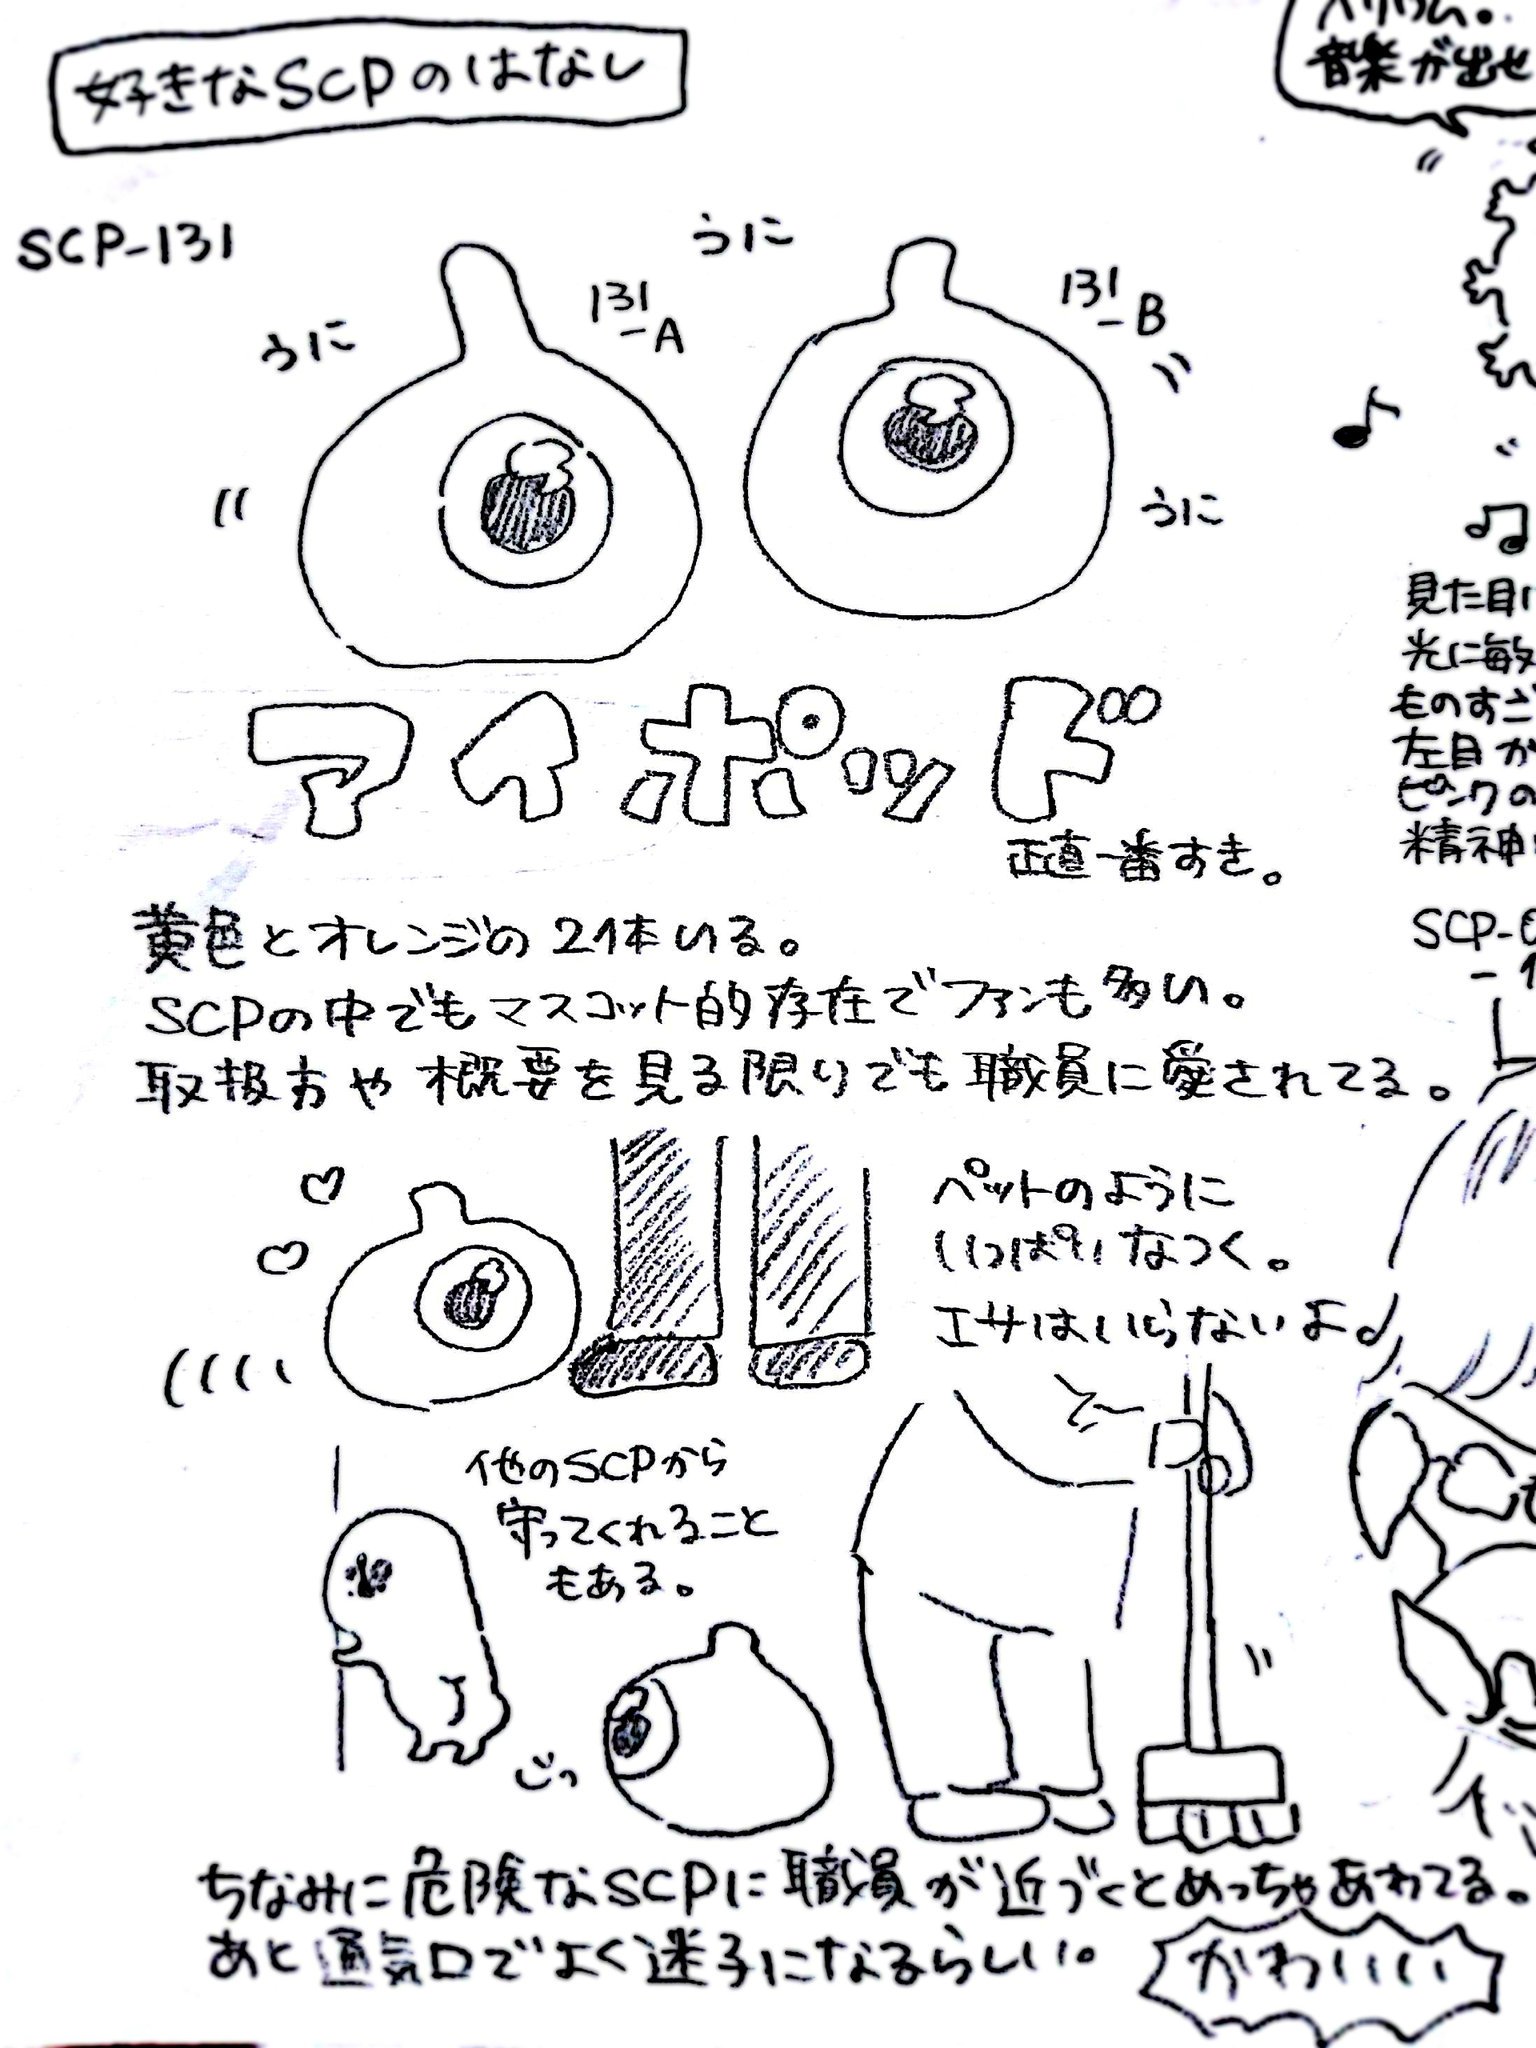 好きなSCPのはなし
SCP-131
うに
131
-A
うに
131
-B
うに
アイポッド
正直一番すき。
黄色とオレンジの2体いる。
SCPの中でもマスコット的存在でファンも多い。
取扱方や概要を見る限りでも職員に愛されてる。
ペットのように
いっぱいなつく。
エサはいらないよ♪
他のSCPから
守ってくれること
もある。
じっ
ちなみに危険なSCPに職員が近づくとめっちゃあわてる。
あと通気口でよく迷子になるらしい。
かわいいい
音楽が出せ
見た目
光に敏
ものすご
左目が
ピンクの
精神
SCP-